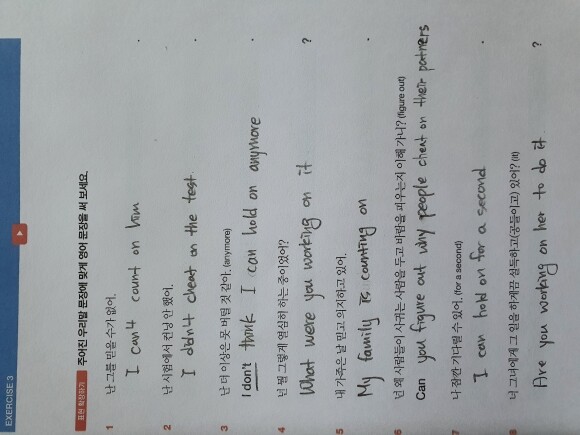 EXERCISE 3
표현 확장하기 주어진 우리말 문장에 맞게 영어 문장을 써 보세요.
1 난 그를 믿을 수가 없어.
I can4 count on him .
2 난 시험에서 컨닝 안 했어.
I didn4 cheat on the test .
3 난 더 이상은 못 버틸 것 같아. (anymore)
I don't think I can hold on anymore .
4 넌 뭘 그렇게 열심히 하는 중이었어?
What were you working on it ?
5 내 가족은 날 믿고 의지하고 있어.
My family is counting on .
6 넌 왜 사람들이 사귀는 사람을 두고 바람을 피우는지 이해 가니? (figure out)
Can you figure out why people cheat on their partners
7 나 잠깐 기다릴 수 있어. (for a second)
I can hold on for a second .
8 너 그녀에게 그 일을 하게끔 설득하고(공들이고) 있어? (it)
Are you working on her to do it ?